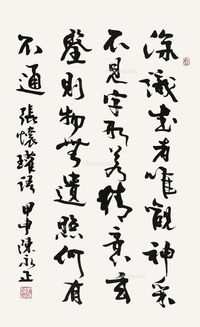 深识书者唯观神采
不見字形若精意玄
鑒則物無遺照何有
不通 張懷瓘語 甲申陳永正